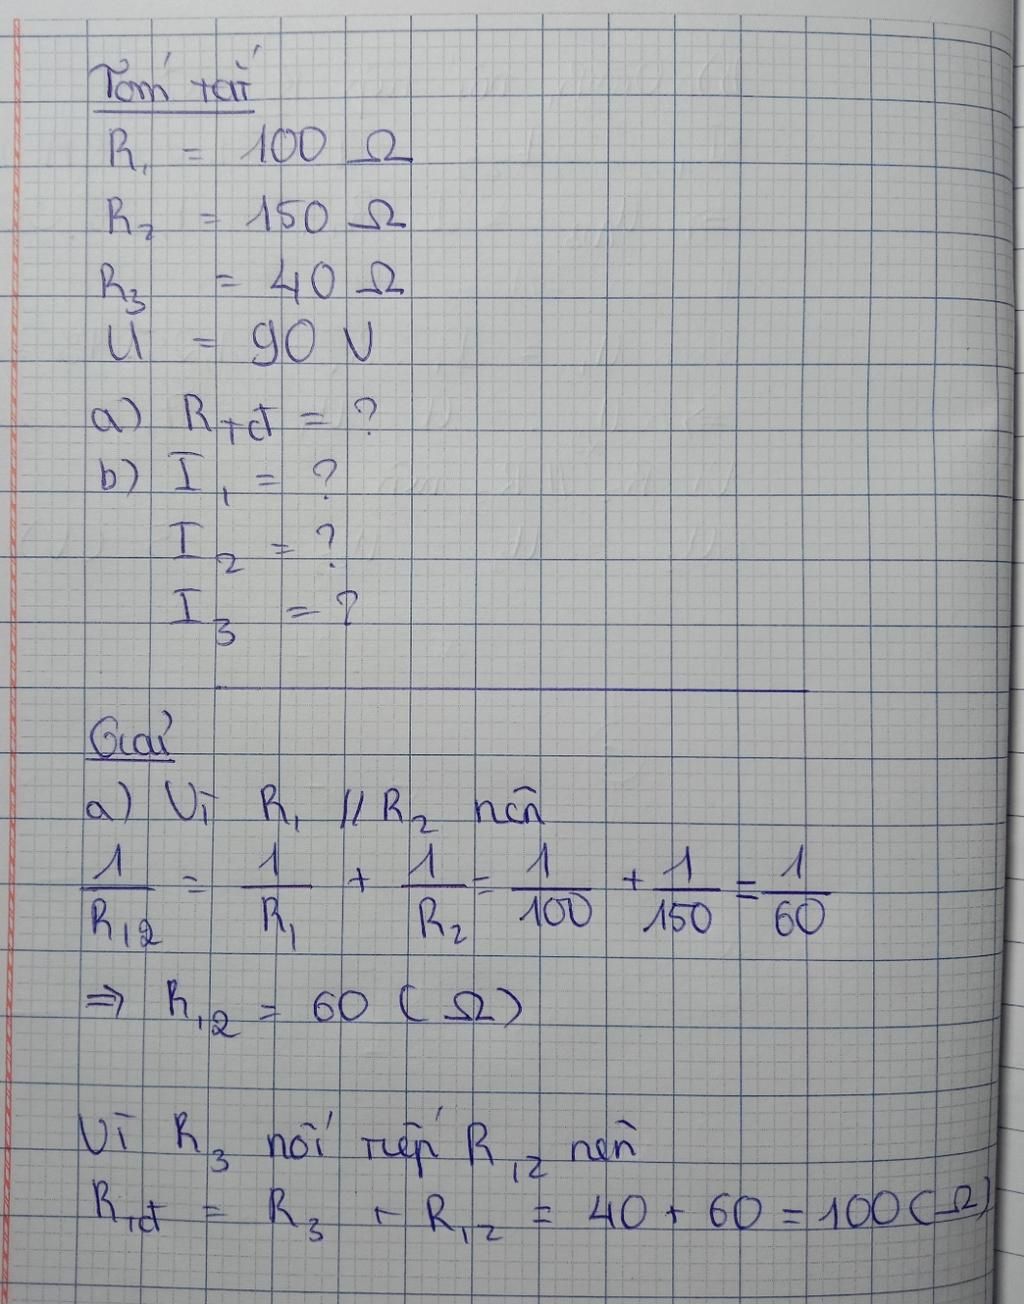 Tóm tắt
R₁ = 100 Ω
R₂ = 150 Ω
R₃ = 40 Ω
U = 90 V
a) R_tđ = ?
b) I₁ = ?
I₂ = ?
I₃ = ?
Giải
a) Vì R₁ // R₂ nên
1/R₁₂ = 1/R₁ + 1/R₂ = 1/100 + 1/150 = 1/60
⇒ R₁₂ = 60 (Ω)
Vì R₃ nối tiếp R₁₂ nên
R_tđ = R₃ + R₁₂ = 40 + 60 = 100 (Ω)